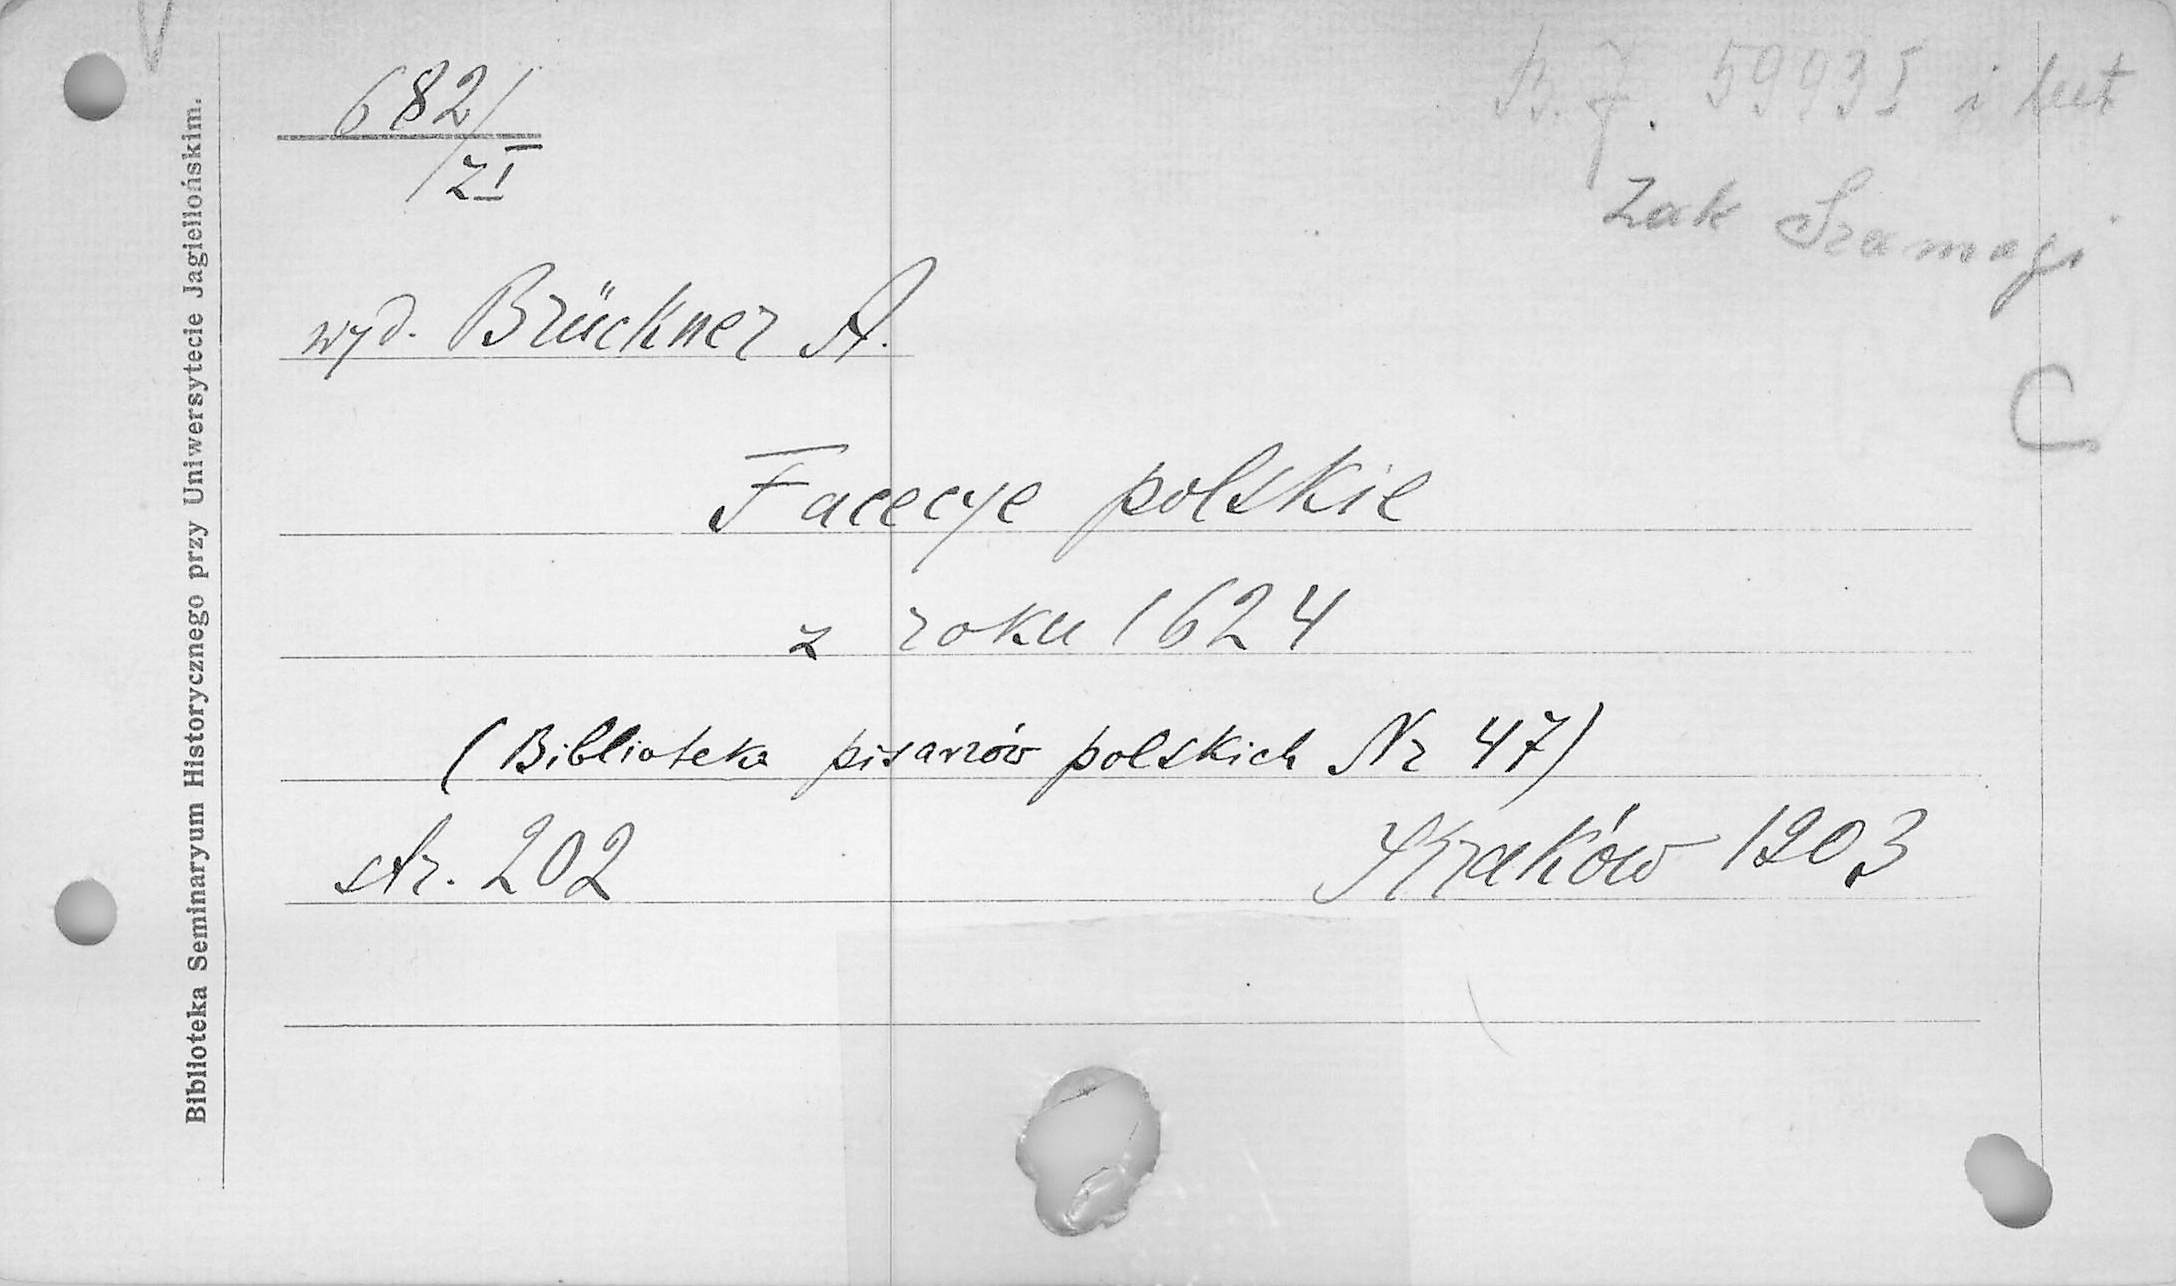 682/
ZI
B. J. 5993 I i
Zak Szamagi
wyd. Brückner A.
C
Facecye polskie
z roku 1624
(Biblioteka pisarzów polskich Nr 47)
str. 202 Kraków 1903
Biblioteka Seminaryum Historycznego przy Uniwersytecie Jagiellońskim.